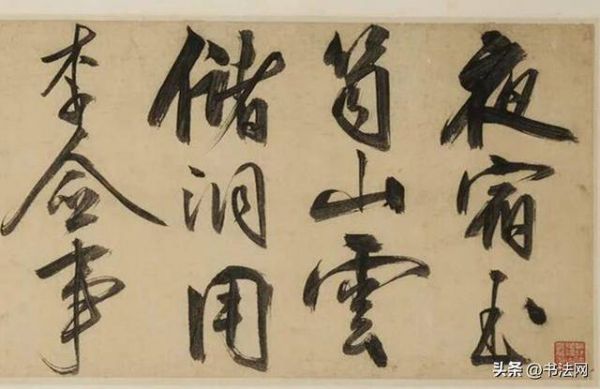 夜宿玉
笥山雲
儲洞用
李僉事
头条 @书法网